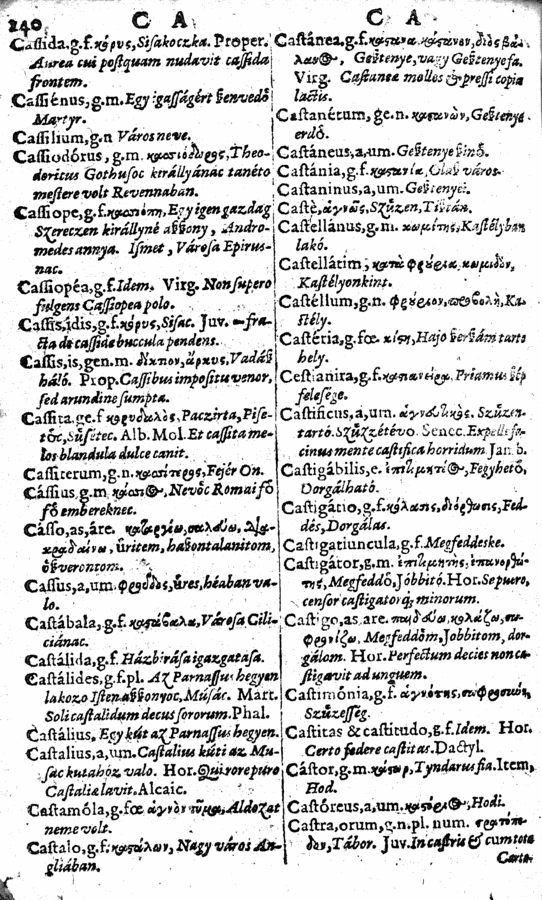 240 C A C A
Cassida, g.f. κόρυς, Sisakoczka. Proper.
Aurea cui postquam nudavit cassida
frontem.
Cassiénus, g.m. Egy igasságért ſzenvedő
Martyr.
Cassilium, g.n Város neve.
Cassiodórus, g.m. Theo-
doricus Gothusoc királlyánac taneto
mestere volt Revennaban.
Cassiope, g.f. Egy igen gazdag
Szereczen királlyné aſzſzony, Andro-
medes annya. Ismet, Városa Epirus-
nac.
Cassiopéa, g.f. Idem. Virg. Non supero
fulgens Cassiopea polo.
Cassis, idis, g.f. κόρυς, Sisac. Juv. – fra-
cta de casside buccula pendens.
Cassis, is, gen.m. δίκτυον, ἄρκυς, Vadáſz
háló. Prop. Cassibus impositu venor,
sed arundine sumpta.
Cassita, ge.f Paczirta, Pise-
Alb. Mol. Et cassita me-
los blandula dulce canit.
Cassiterum, g.n. Fejér On.
Cássius, g.m Nevőc Romai fő
fő embereknec.
Casso, as, áre.
üritem, haſzontalanitom,
Cassus, a, um. üres, héaban va-
lo.
Castábala, g.f. Városa Cili-
ciánac.
Castálida, g.f. Házbirása igazgatasa.
Castálides, g.f.pl. Az Parnassus hegyen
lakozo Isten aſzſzonyoc, Músác. Mart.
Soli castalidum decus sororum. Phal.
Castálius, Egy kút az Parnassus hegyen.
Castalius, a, um. Castalius kúti az Mu-
sac kutahóz valo. Hor. Qui rore puro
Castaliæ lavit. Alcaic.
Castamóla, g.fœ Aldozat
neme volt.
Castalo, g.f. Nagy város An-
gliában.
Castánea, g.f.
Geſztenye, vagy Geſztenyefa.
Virg. Castaneæ molles & pressi copia
lactis.
Castanétum, ge.n. Geſztenye
erdő.
Castáneus, a, um. Geſztenye
Castánia, g.f. város.
Castaninus, a, um. Geſztenyei.
Castè, ἁγνῶς, Szűzen, Tiſztán.
Castellánus, g.m. κωμίτης, Kastélyban
lakó.
Castellátim,
Kastélyonkint.
Castéllum, g.n. φρούριον, Ka-
stély.
Castéria, g.fœ. Hajo ſzerſzám tarto
hely.
Cestianira, g.f. Priamus
felesége.
Castificus, a, um. Szűzen-
tartó. Szűzzé tévő. Senec. Expelle fa-
cinus mente castifica horridum Jamb.
Castigábilis, e. Fegyhető,
Dorgálható.
Castigátio, g.f. κόλασις, διόρθωσις, Fed-
dés, Dorgálas.
Castigatiuncula, g.f. Megfeddeske.
Castigátor, g.m.
Megfeddő, Jóbbitó. Hor. Se puero,
censor castigator q; minorum.
Castigo, as, are.
Megfeddőm, Jobbitom, dor-
gálom. Hor. Perfectum decies non ca-
stigavit ad unguem.
Castimónia, g.f.
Szűzesség.
Castitas & castitudo, g.f. Idem. Hor.
Certo fœdere castitas. Dactyl.
Cástor, g.m. Tyndarus fia. Item,
Hod.
Castóreus, a, um. Hodi.
Castra, orum, g.n.pl. num.
Tábor. Juv. In castris & cum tota
Carta-